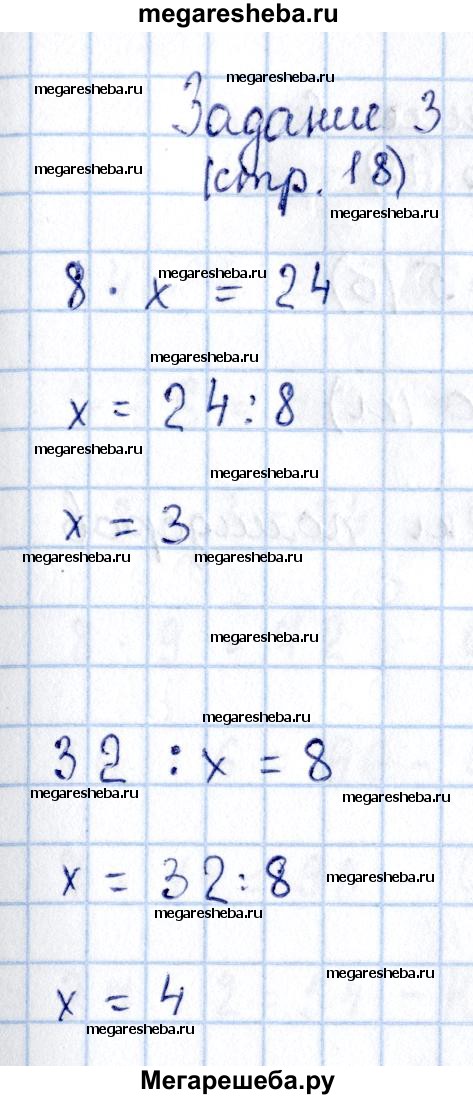 megaresheba.ru
megaresheba.ru
megaresheba.ru
Задание 3
megaresheba.ru
(стр. 18)
megaresheba.ru
megaresheba.ru
8 · x = 24
megaresheba.ru
x = 24 : 8
megaresheba.ru
megaresheba.ru
x = 3
megaresheba.ru megaresheba.ru
megaresheba.ru
megaresheba.ru
32 : x = 8
megaresheba.ru megaresheba.ru
x = 32 : 8
megaresheba.ru
megaresheba.ru
megaresheba.ru
x = 4
megaresheba.ru
Мегарешеба.ру